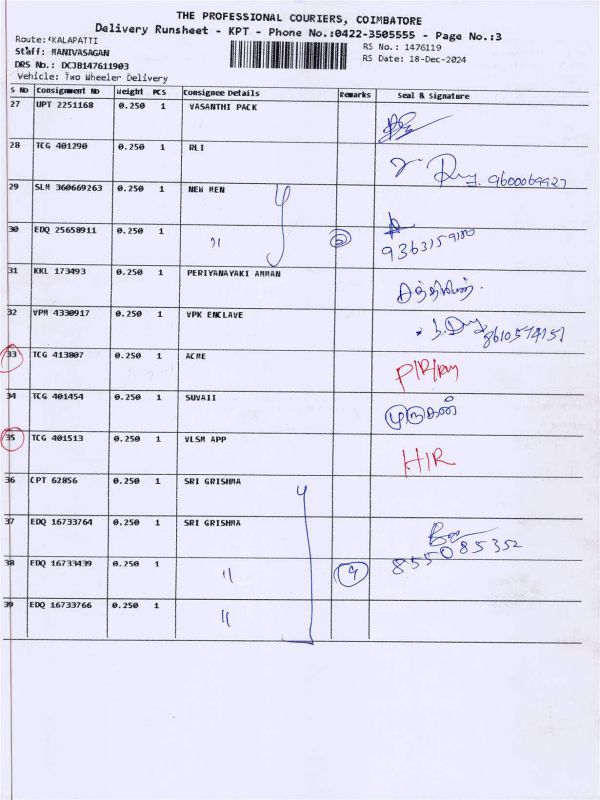 THE PROFESSIONAL COURIERS, COIMBATORE
Delivery Runsheet - KPT - Phone No.:0422-3505555 - Page No.:3
Route: KALAPATTI
Staff: MANIVASAGAN
DRS No.: DCJB147611903
Vehicle: Two Wheeler Delivery
RS No.: 1476119
RS Date: 18-Dec-2024
S No Consignment No Weight PCS Consignee Details Remarks Seal & Signature
27 UPT 2251168 0.250 1 VASANTHI PACK
28 TCG 401290 0.250 1 RLI 9600069927
29 SLM 360669263 0.250 1 NEW MEN
30 EDQ 25658911 0.250 1 " 2 9363159180
31 KKL 173493 0.250 1 PERIYANAYAKI AMMAN
32 VPM 4330917 0.250 1 VPK ENCLAVE 8610574151
33 TCG 413807 0.250 1 ACME
34 TCG 401454 0.250 1 SUVAII முருகன்
35 TCG 401513 0.250 1 VLSM APP H/R
36 CPT 62856 0.250 1 SRI GRISHMA
37 EDQ 16733764 0.250 1 SRI GRISHMA 855085352
38 EDQ 16733439 0.250 1 " 4
39 EDQ 16733766 0.250 1 "